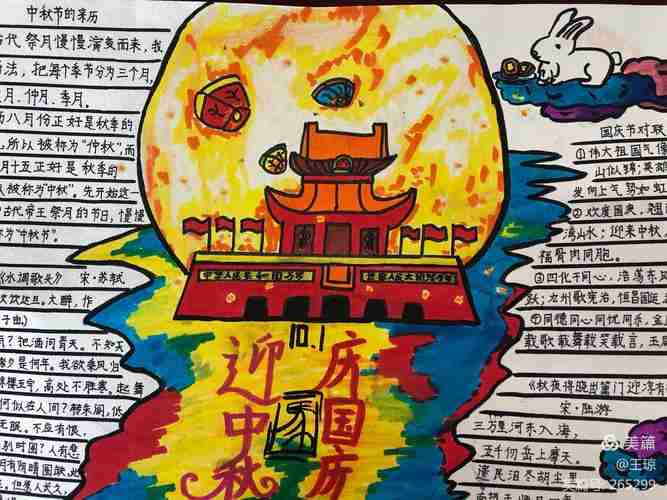 中秋节的来历
古代祭月慢慢演变而来,我
历法,把每个季节分为三个月,
月、仲月、季月。
八月份正好是秋季的
所以被称为"仲秋",而
月十五正好是秋季的
被称为"中秋"。先开始这一
古代帝王祭月的节日,慢慢
称为"中秋节"。
《水调歌头》 宋·苏轼
欢饮达旦,大醉,作
子由。)
有?把酒问青天。不知天
是何年。我欲乘风归
琼楼玉宇,高处不胜寒。起舞
何似在人间?转朱阁,低
无眠。不应有恨,
别时圆?人有悲
月有阴晴圆缺,此
但愿人长久,
10.1
迎中秋
庆国庆
国庆节对联
①伟大祖国气
山似锦;英雄
发向上气势如虹
②欢度国庆,祖
满山水;迎来中秋,
福骨肉同胞。
③四化千同心,
跃;九州歌宪治,恒昌
④同德同心同忧同乐,
载歌载舞载笑载言,玉
《秋夜将晓出篱门迎凉有
宋·陆游
三万里河东入海,
五千仞岳上摩天。
遗民泪尽胡尘里,
美篇
@王琼
265299